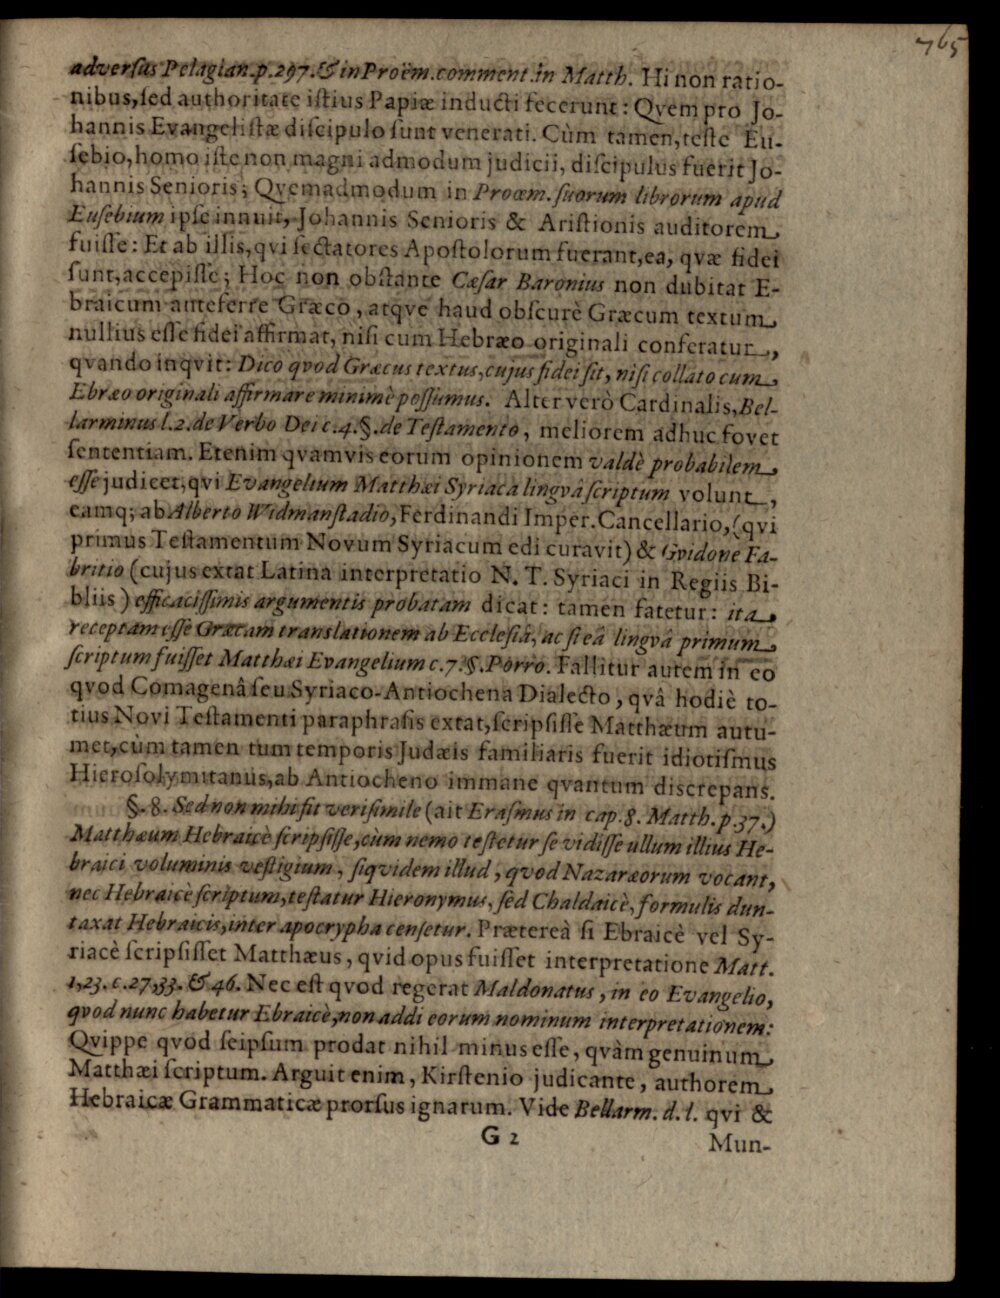 765
adverſus Pelagian.p.297.& in Proëm.comment.in Matth. Hi non ratio-
nibus,ſed authoritate iſtius Papiæ inducti fecerunt: Qvem pro Jo-
hannis Evangeliſtæ diſcipulo ſunt venerati. Cùm tamen,teſte Eu-
ſebio,homo iſte non magni admodum judicii, diſcipulus fuerit Jo-
hannis Senioris; Qvemadmodum in Proœm.ſuorum librorum apud
Euſebium ipſe innuit, Johannis Senioris & Ariſtionis auditorem
fuiſſe: Et ab illis,qvi ſectatores Apoſtolorum fuerant,ea, qvæ fidei
ſunt,accepiſſe; Hoc non obſtante Cæſar Baronius non dubitat E-
braicum anteferre Græco, atqve haud obſcurè Græcum textum
nullius eſſe fidei affirmat, niſi cum Hebræo originali conferatur,
qvando inqvit: Dico qvod Græcus textus,cujus fidei ſit, niſi collato cum
Ebræo originali affirmare minimè poſſumus. Alter verò Cardinalis,Bel-
larminus l.2.de Verbo Dei c.4.§.de Teſtamento, meliorem adhuc fovet
ſententiam. Etenim qvamvis eorum opinionem valdè probabilem
eſſe judicet,qvi Evangelium Matthæi Syriaca lingvâ ſcriptum volunt,
eamq; ab Alberto Widmanſtadio,Ferdinandi Imper.Cancellario,(qvi
primus Teſtamentum Novum Syriacum edi curavit) & Gvidone Fa-
britio (cujus extat Latina interpretatio N. T. Syriaci in Regiis Bi-
bliis) efficaciſſimis argumentis probatam dicat: tamen fatetur: ita
receptam eſſe Græcam translationem ab Eccleſiâ, ac ſi eâ lingvâ primum
ſcriptum fuiſſet Matthæi Evangelium c.7.§.Porrò. Fallitur autem in eo
qvod Comagenâ ſeu Syriaco-Antiochena Dialecto, qvâ hodiè to-
tius Novi Teſtamenti paraphraſis extat,ſcripſiſſe Matthæum autu-
met,cùm tamen tum temporis Judæis familiaris fuerit idiotiſmus
Hieroſolymitanus,ab Antiocheno immane qvantum diſcrepans.
§.8. Sed non mihi fit veriſimile (ait Eraſmus in cap.8. Matth.p.37.)
Matthæum Hebraicè ſcripſiſſe,cùm nemo teſtetur ſe vidiſſe ullum illius He-
braici voluminis veſtigium, ſiqvidem illud, qvod Nazaræorum vocant,
nec Hebraicè ſcriptum,teſtatur Hieronymus, ſed Chaldaicè, formulis dun-
taxat Hebraicis,inter apocrypha cenſetur. Prætereà ſi Ebraicè vel Sy-
riacè ſcripſiſſet Matthæus, qvid opus fuiſſet interpretatione Matt.
1,23. c.27,33. & 46. Nec eſt qvod regerat Maldonatus, in eo Evangelio,
qvod nunc habetur Ebraicè,non addi eorum nominum interpretationem:
Qvippe qvod ſeipſum prodat nihil minus eſſe, qvàm genuinum
Matthæi ſcriptum. Arguit enim, Kirſtenio judicante, authorem
Hebraicæ Grammaticæ prorſus ignarum. Vide Bellarm. d. l. qvi &
G 2
Mun-